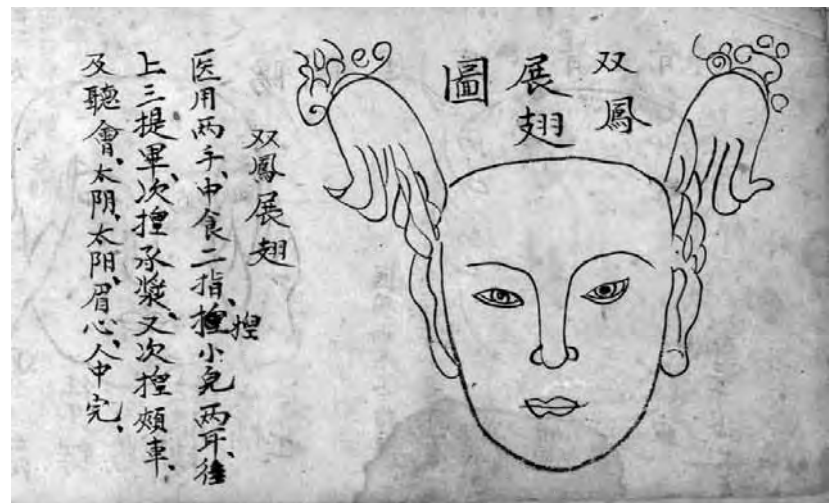 双鳳
展翅
圖
双鳳展翅
医用两手、中食二指、捏小兒两耳、往
上三提畢、次捏承漿、又次捏頰車、
及聽會、太阴、太阳、眉心、人中完、